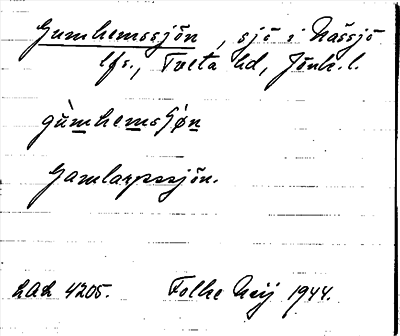 Gumhemssjön, sjö i Nässjö
lfs., Tveta hd, Jönk. l.
gùmhemsʃøn
Gamlarpssjön.
LAL 4205. Folke Neij 1944.